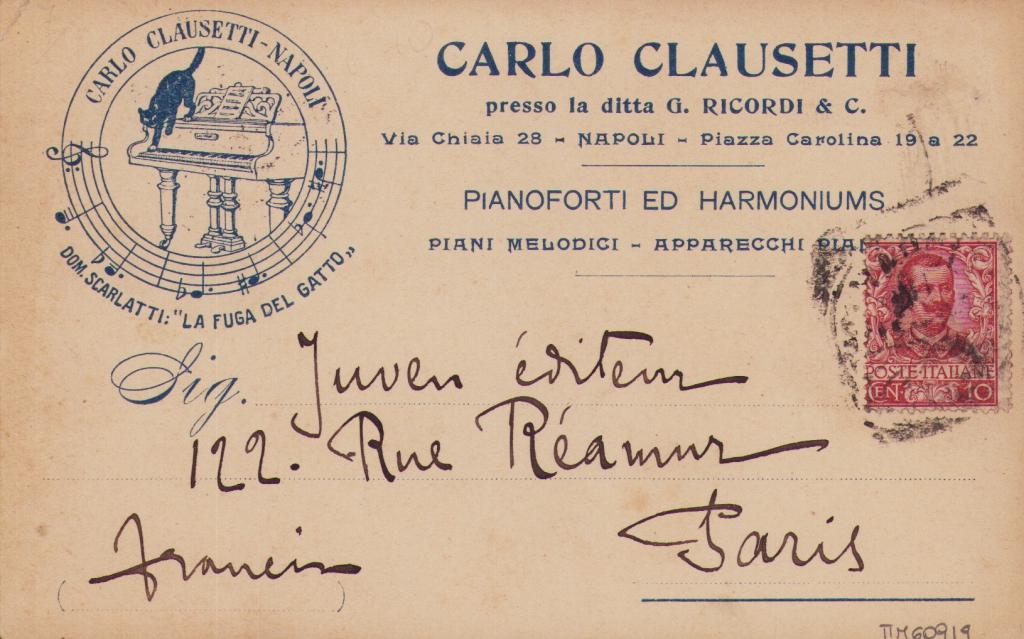 CARLO CLAUSETTI - NAPOLI
DOM. SCARLATTI: "LA FUGA DEL GATTO„
CARLO CLAUSETTI
presso la ditta G. RICORDI & C.
Via Chiaia 28 - NAPOLI - Piazza Carolina 19 a 22
PIANOFORTI ED HARMONIUMS
PIANI MELODICI - APPARECCHI PIAN
POSTE·ITALIANE
CEN. 10
Sig. Juven éditeur
122. Rue Réamur
Paris
Francia
TTM60919